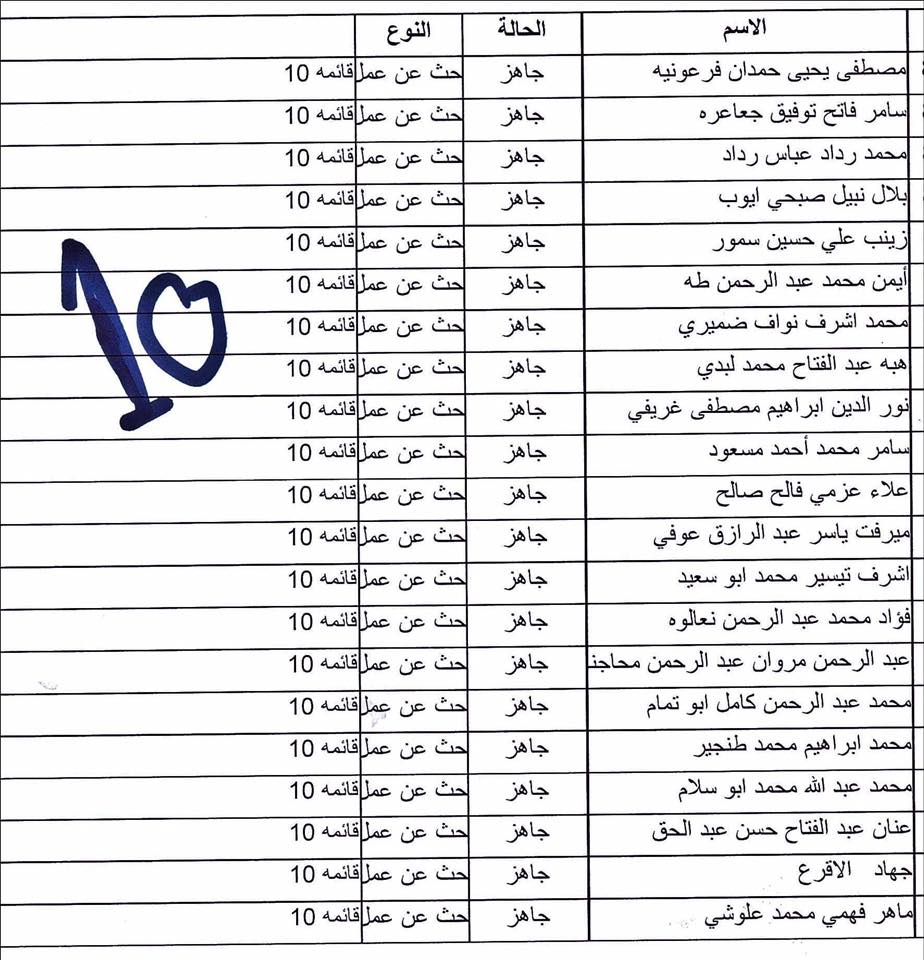 الاسم الحالة النوع
مصطفى يحيى حمدان فرعونيه جاهز حث عن عمل قائمه 10
سامر فاتح توفيق جعاعره جاهز حث عن عمل قائمه 10
محمد رداد عباس رداد جاهز حث عن عمل قائمه 10
بلال نبيل صبحي ايوب جاهز حث عن عمل قائمه 10
زينب علي حسين سمور جاهز حث عن عمل قائمه 10
أيمن محمد عبد الرحمن طه جاهز حث عن عمل قائمه 10
محمد اشرف نواف ضميري جاهز حث عن عمل قائمه 10
هبه عبد الفتاح محمد لبدي جاهز حث عن عمل قائمه 10
نور الدين ابراهيم مصطفى غريفي جاهز حث عن عمل قائمه 10
سامر محمد أحمد مسعود جاهز حث عن عمل قائمه 10
علاء عزمي فالح صالح جاهز حث عن عمل قائمه 10
ميرفت ياسر عبد الرازق عوفي جاهز حث عن عمل قائمه 10
اشرف تيسير محمد ابو سعيد جاهز حث عن عمل قائمه 10
فؤاد محمد عبد الرحمن نعالوه جاهز حث عن عمل قائمه 10
عبد الرحمن مروان عبد الرحمن محاجنـ جاهز حث عن عمل قائمه 10
محمد عبد الرحمن كامل ابو تمام جاهز حث عن عمل قائمه 10
محمد ابراهيم محمد طنجير جاهز حث عن عمل قائمه 10
محمد عبد الله محمد ابو سلام جاهز حث عن عمل قائمه 10
عنان عبد الفتاح حسن عبد الحق جاهز حث عن عمل قائمه 10
جهاد الاقرع جاهز حث عن عمل قائمه 10
ماهر فهمي محمد علوشي جاهز حث عن عمل قائمه 10
10